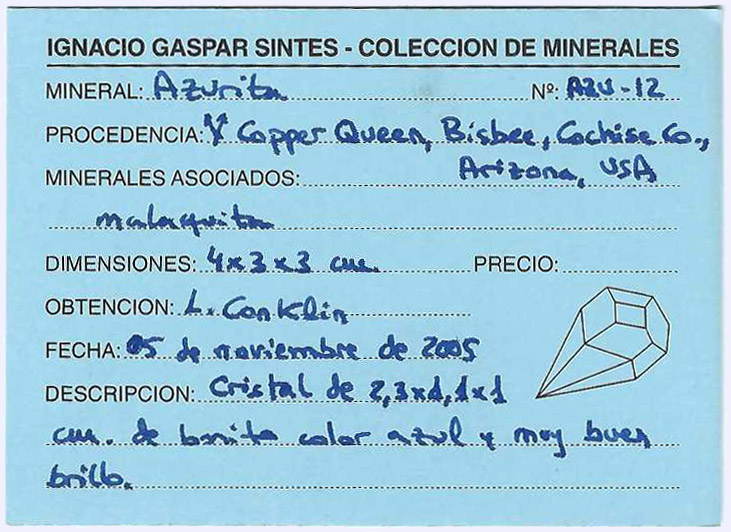 IGNACIO GASPAR SINTES - COLECCION DE MINERALES
MINERAL: Azurita Nº: AZU-12
PROCEDENCIA: Copper Queen, Bisbee, Cochise Co.,
Arizona, USA
MINERALES ASOCIADOS:
malaquita
DIMENSIONES: 4x3x3 cm. PRECIO:
OBTENCION: L. Conklin
FECHA: 05 de noviembre de 2005
DESCRIPCION: Cristal de 2,3x1,1x1
cm. de bonito color azul y muy buen
brillo.